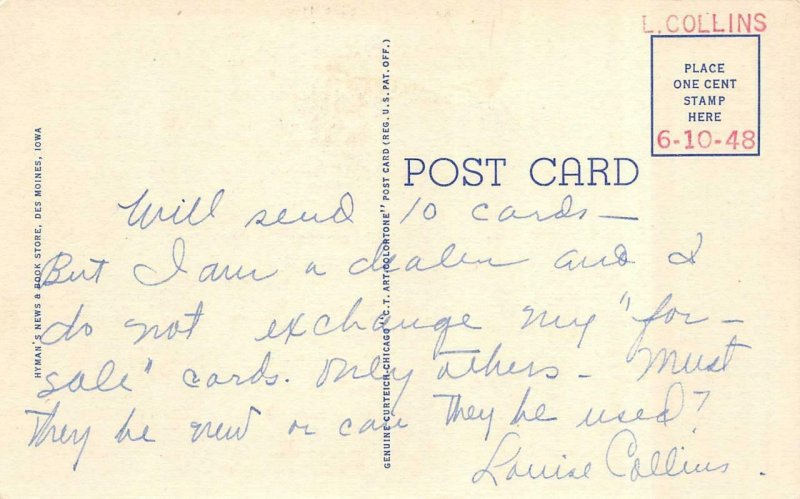 L. COLLINS
PLACE
ONE CENT
STAMP
HERE
6-10-48
POST CARD
HYMAN'S NEWS & BOOK STORE, DES MOINES, IOWA
GENUINE CURTEICH-CHICAGO "C.T. ART-COLORTONE" POST CARD (REG. U.S. PAT. OFF.)
Will send 10 cards—
But I am a dealer and I
do not exchange my "for-
sale" cards. Only others - Must
They be new or can They be used?
Louise Collins.